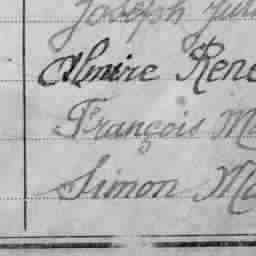 Joseph Jul
Almire René
François Ma
Simon Ma